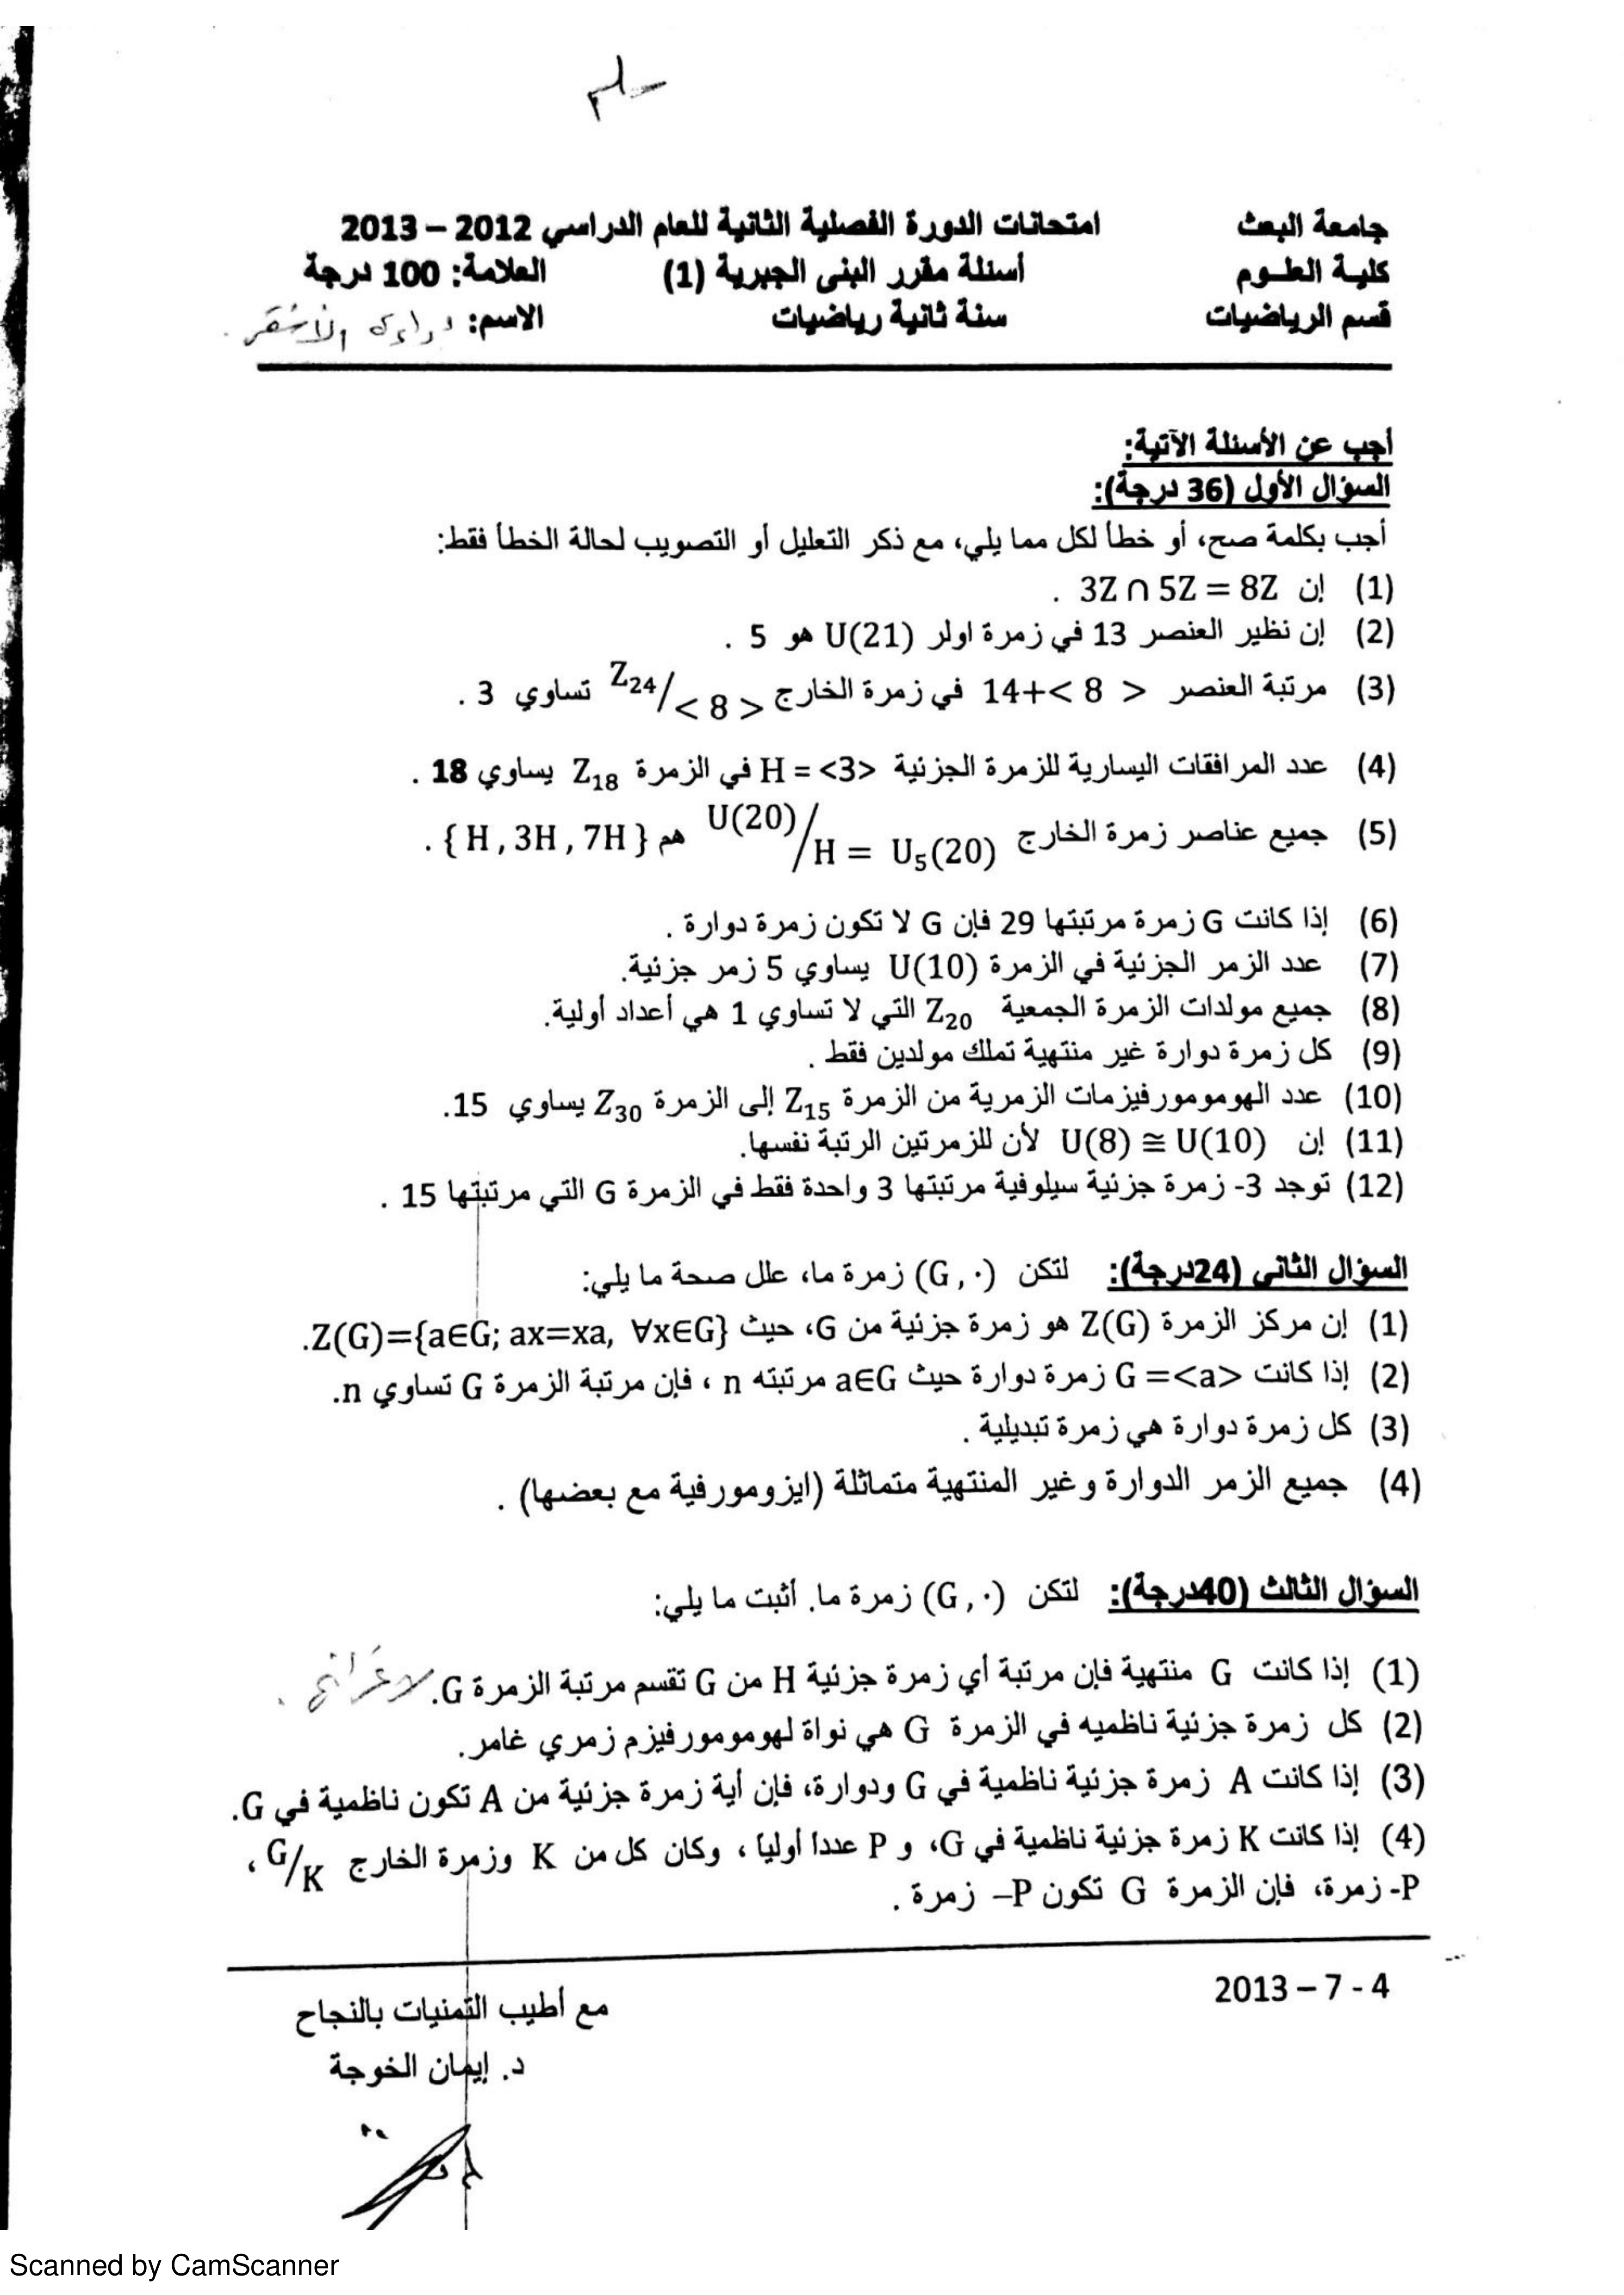 سلم
جامعة البعث امتحانات الدورة الفصلية الثانية للعام الدراسي 2012 – 2013
كلية العلوم أسئلة مقرر البنى الجبرية (1) العلامة: 100 درجة
قسم الرياضيات سنة ثانية رياضيات الاسم:
أجب عن الأسئلة الآتية:
السؤال الأول (36 درجة):
أجب بكلمة صح، أو خطأ لكل مما يلي، مع ذكر التعليل أو التصويب لحالة الخطأ فقط:
(1) إن 3Z ∩ 5Z = 8Z .
(2) إن نظير العنصر 13 في زمرة اولر U(21) هو 5 .
(3) مرتبة العنصر 14+< 8 > في زمرة الخارج Z₂₄/< 8 > تساوي 3 .
(4) عدد المرافقات اليسارية للزمرة الجزئية H = <3> في الزمرة Z₁₈ يساوي 18 .
(5) جميع عناصر زمرة الخارج U(20)/H = U₅(20) هم { H , 3H , 7H } .
(6) إذا كانت G زمرة مرتبتها 29 فإن G لا تكون زمرة دوارة .
(7) عدد الزمر الجزئية في الزمرة U(10) يساوي 5 زمر جزئية.
(8) جميع مولدات الزمرة الجمعية Z₂₀ التي لا تساوي 1 هي أعداد أولية.
(9) كل زمرة دوارة غير منتهية تملك مولدين فقط .
(10) عدد الهومومورفيزمات الزمرية من الزمرة Z₁₅ إلى الزمرة Z₃₀ يساوي 15.
(11) إن U(8) ≅ U(10) لأن للزمرتين الرتبة نفسها.
(12) توجد 3- زمرة جزئية سيلوفية مرتبتها 3 واحدة فقط في الزمرة G التي مرتبتها 15 .
السؤال الثاني (24درجة): لتكن (G , ·) زمرة ما، علل صحة ما يلي:
(1) إن مركز الزمرة Z(G) هو زمرة جزئية من G، حيث Z(G)={a∈G; ax=xa, ∀x∈G}.
(2) إذا كانت G =<a> زمرة دوارة حيث a∈G مرتبته n ، فإن مرتبة الزمرة G تساوي n.
(3) كل زمرة دوارة هي زمرة تبديلية .
(4) جميع الزمر الدوارة وغير المنتهية متماثلة (ايزومورفية مع بعضها) .
السؤال الثالث (40درجة): لتكن (G , ·) زمرة ما. أثبت ما يلي:
(1) إذا كانت G منتهية فإن مرتبة أي زمرة جزئية H من G تقسم مرتبة الزمرة G. لاغرانج .
(2) كل زمرة جزئية ناظميه في الزمرة G هي نواة لهومومورفيزم زمري غامر.
(3) إذا كانت A زمرة جزئية ناظمية في G ودوارة، فإن أية زمرة جزئية من A تكون ناظمية في G.
(4) إذا كانت K زمرة جزئية ناظمية في G، و P عددا أوليا ، وكان كل من K وزمرة الخارج G/K ،
P- زمرة، فإن الزمرة G تكون P– زمرة .
2013 – 7 - 4
مع أطيب التمنيات بالنجاح
د. إيمان الخوجة
Scanned by CamScanner